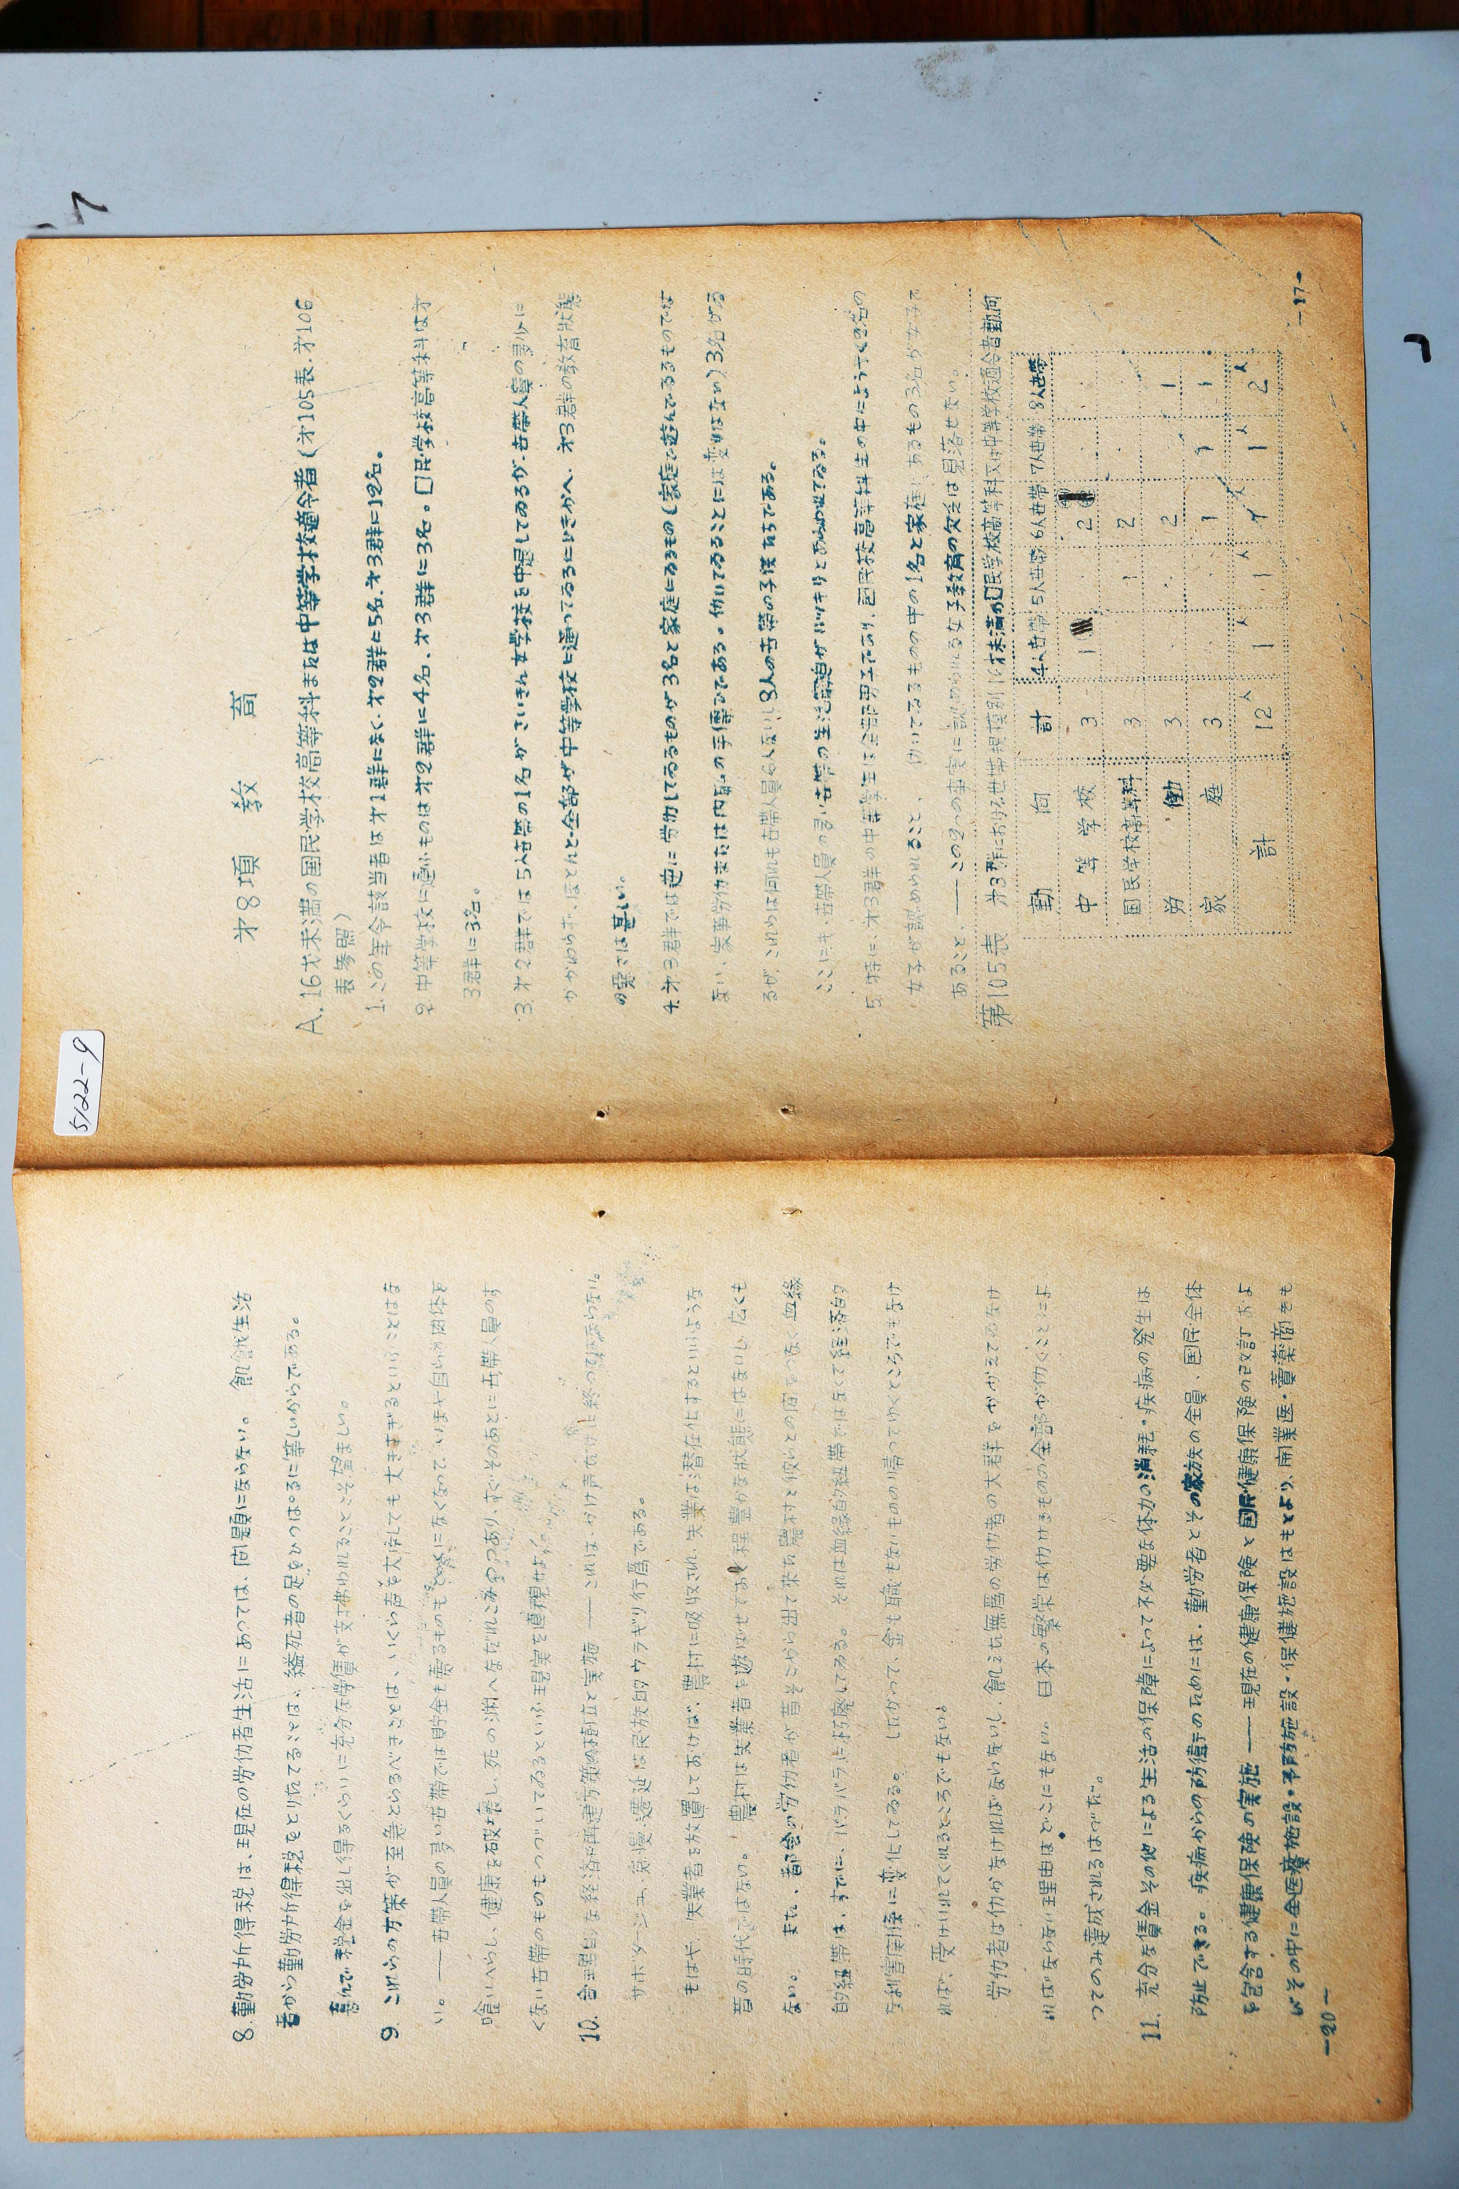 8. 勤労所得税は、現在の労働者生活にあつては、問題にならない。飢餓生活
者から勤労所得税をとりたてることは、縊死者の足をひつぱるに等しいからである。
喜んで税金を出し得るくらいに充分な労賃が支拂われることこそ望ましい。
9. これらの方策が至急とらるべきことは、いくら声を大にしても大きすぎるといふことはな
い。――世帯人員の多い世帯では貯金も賣るものもとうになくなつて、いまや自らの肉体を
喰いへらし、健康を破壊し、死の淵へなだれこみつつあり、すぐそのあとに世帯人員のす
くない世帯のものもつづいてゐるといふ現実を直視せよ
10. 合理的な経済再建方策の樹立と実施――これは、かけ声だけに終つてはならない。
サボタージュ、怠慢、遷延は民族的ウラギリ行為である。
もはや、失業者を放置しておけば、農村に吸収され、失業は潜在化するといいうような
昔の時代ではない。農村は失業者を遊ばせておく程豊かな状態にはないし、広くも
ない。また、都会の労働者が昔そこから出て来た農村と彼らとの間をつなぐ血縁
的紐帯は、すでに、バラバラに朽廃してゐる。それは血縁的紐帯ではなくて経済的
な利害関係に変化してゐる。したがつて、金も職もないものの帰つてゆくところでもなけ
れば、受けいれてくれるところでもない。
労働者は働かなければならないし、飢えた無産の労働者の大群をかかえてゐなけ
ればならない理由はどこにもない。日本の繁栄は働けるものの全部が働くことによ
つてのみ達成されるはづだ。
11. 充分な賃金その他による生活の保障によつて不必要な体力の消耗・疾病の発生は
防止できる。疾病からの防衛のためには、勤労者とその家族の全員、国民全体
を包含する健康保険の実施――現在の健康保険と国民健康保険の改訂およ
びその中に全医療施設・予防施設・保健施設はもとより、開業医・賣薬商をも
－20－
5122-9
才8項　教　育
A. 16才未満の国民学校高等科または中等学校適令者（才105表．才106
表参照）
1. この年令該当者は才1群になく、才2群に5名、才3群に12名。
2. 中等学校に通ふものは才2群に4名、才3群に3名。国民学校高等科は才
3群に3名。
3. 才2群では5人世帯の1名がさいきん女学校を中退してゐるが、世帯人員の多少に
かかわらず、ほとんど全部が中等学校に通つてゐるにひきかへ、才3群の教育状態
の悪さは甚しい。
4. 才3群では逆に労働してゐるものが3名と家庭にゐるもの（家庭で遊んでゐるものでは
ない、家事労働または内職の手傳ひである。働いてゐることには変りはない）3名がゐ
るが、これらは何れも世帯人員6人ないし8人の世帯の子供たちである。
ここにも、世帯人員の多い世帯の生活窮迫がハツキリとあらわれてゐる。
5. 特に、才3群の中等学生は全部男子であり、国民学校高等科生の中にようやく2名の
女子が認められること、働いてゐるものの中の1名と家庭にあるもの3名が女子で
あること、――この2つの事実に認められる女子教育の欠乏は見落せない。
第105表　才3群における世帯規模別16才未満の国民学校高等科又は中等学校適令者動向
動　向　計　4人世帯　5人世帯　6人世帯　7人世帯　8人世帯
中等学校　3　1　・　2　・　・
国民学校高等科　3　・　1　2　・　・
労　働　3　・　・　2　・　1
家　庭　3　・　・　1　1　1
計　12人　1人　1人　7人　1人　2人
－17－